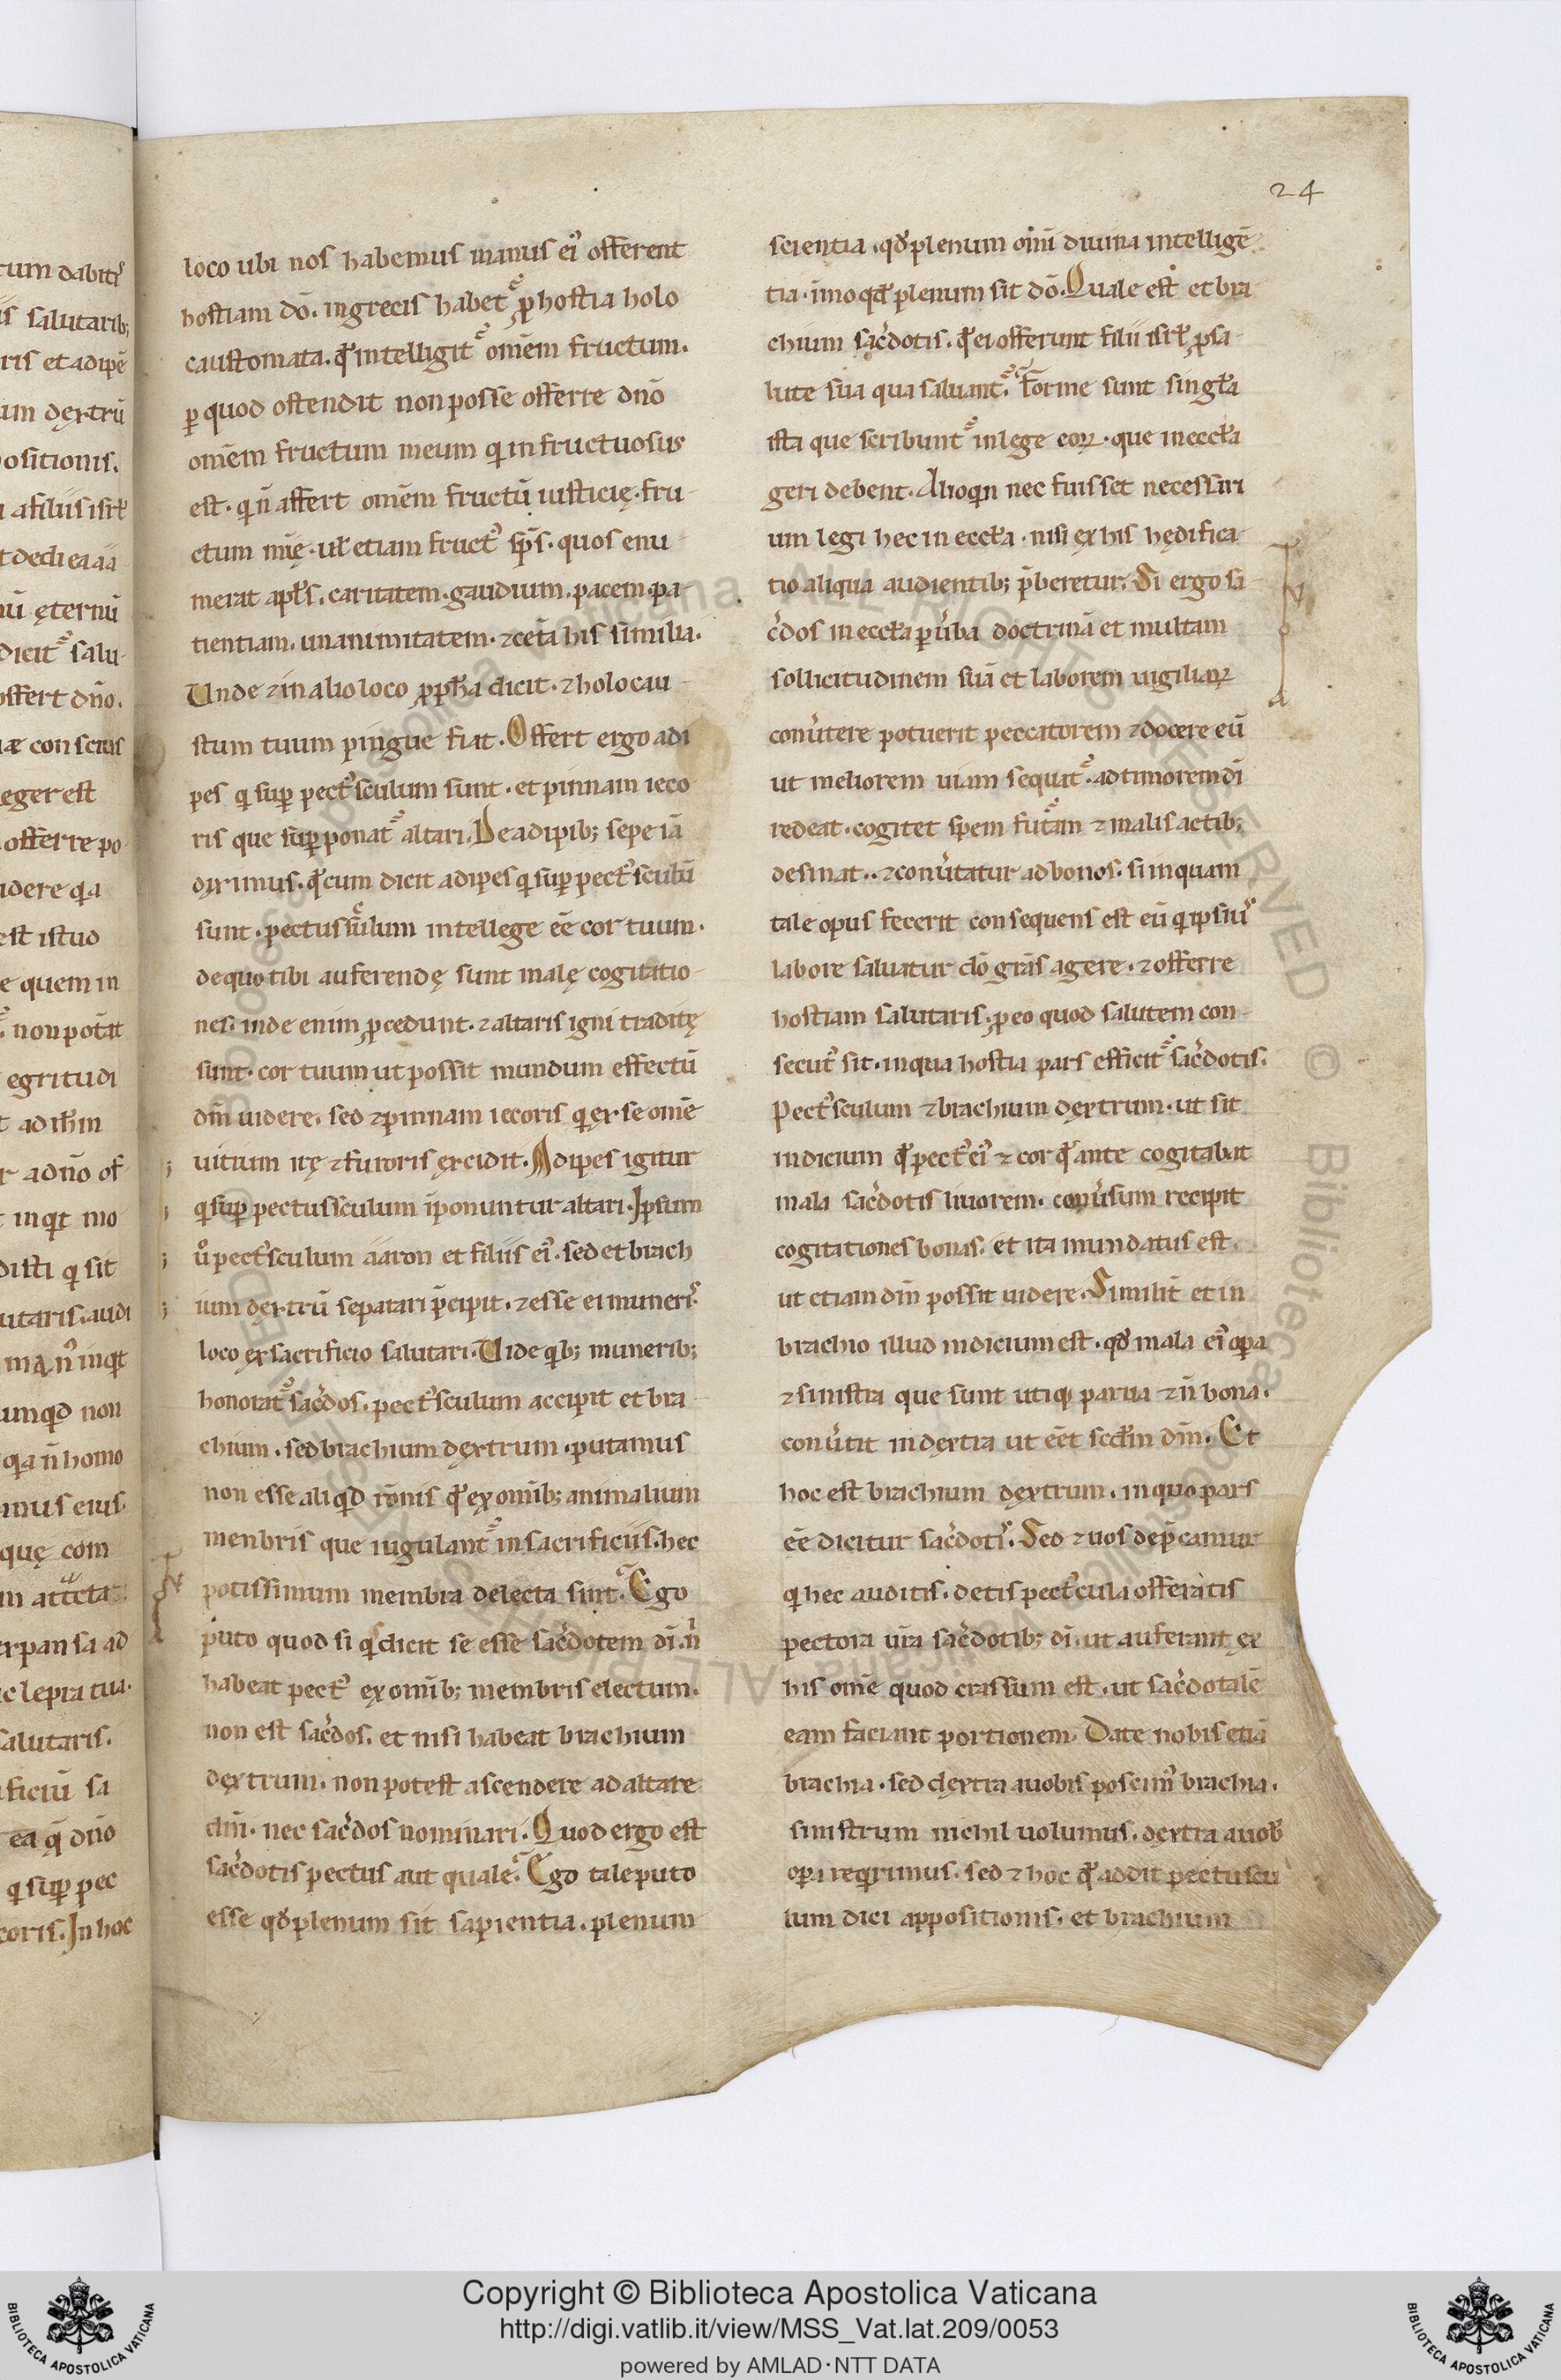 24
loco ubi nos habemus manus ei᾽ offerent
hostiam dō. ingrecis habet᷑ ꝓ hostia holo
caustomata. qd̓ intelligit᷑ om̄em fructum.
ꝑ quod ostendit non posse offerre dn̄o
om̄em fructum meum qi infructuosus
est. qi n̄ affert om̄em fructū iusticię. fru-
ctum mīę. ul̓ etiam fruct᾽ sp̄s. quos enu-
merat apl̓s. caritatem. gaudium. pacem. pa-
tientiam. unanimitatem. ⁊ cet̓a his similia.
Unde ⁊ in alio loco ꝓph̓a dicit. ⁊ holocau-
stum tuum pingue fiat. Offert ergo adi
pes qi suꝑ pect᾽sculum sunt. et pinnam ieco
ris que suꝑponat᷑ altari. De adipib; sepe iā
diximus. qd̓ cum dicit adipes qi suꝑ pect᾽sculū
sunt. pectusculum intellege eē cor tuum.
de quo tibi auferendę sunt malę cogitatio-
nes. inde enim ꝓcedunt. ⁊ altaris igni traditę
sunt. cor tuum ut possit mundum effectū
dm̄ uidere. sed ⁊ pinnam iecoris qi ex se om̄e
uitium irę ⁊ furoris excidit. Adipes igitur
qi suꝑ pectussculum īponuntur altari. Ipsum
u̓o pect᾽sculum aaron et filiis ei᾽. sed et brach
ium dextrū separari p̄cipit. ⁊ esse ei muneris
loco ex sacrificio salutari. Uide qib; munerib;
honorat᷑ sac̓dos. pect᾽sculum accipit et bra-
chium. sed brachium dextrum. putamus
non esse aliqd rōnis qd̓ ex om̄ib; animalium
menbris que iugulant᷑ in sacrificiis. hec
potissimum membra delecta sint. Ego
puto quod si qi dicit se esse sac̓dotem dī. n̄
habeat pect᾽ ex om̄ib; membris electum.
non est sac̓dos. et nisi habeat brachium
dextrum. non potest ascendere ad altare
dn̄i. nec sac̓dos nominari. Quod ergo est
sac̓dotis pectus aut quale. Ego tale puto
esse qd̓ plenum sit sapientia. plenum
scientia. qd̓ plenum om̄i diuina intelligē-
tia. īmo qd̓ plenum sit dō. Quale est et bra
chium sac̓dotis. qd̓ ei offerunt filii isrl̓ ꝓ sa-
lute sua qua saluant᷑. Forme sunt singl̓a
ista que scribunt᷑ in lege eoꝝ. que in eccl̓a
geri debent. Alioqin nec fuisset necessari
um legi hec in eccl̓a. nisi ex his hędifica-
tio aliqua audientib; p̄beretur. Si ergo sa-
c̓dos in eccl̓a per u̓ba doctrinā et multam
sollicitudinem suā et laborem uigiliaꝝ
conu̓tere potuerit peccatorem ⁊ docere eū
ut meliorem uiam sequat᷑. ad timorem dī
redeat. cogitet spem fut᷑am ⁊ malis actib;
desinat. ⁊ conu̓tatur ad bonos. si inquam
tale opus fecerit consequens est eū qi ipsius
labore saluatur dō grās agere. ⁊ offerre
hostiam salutaris. ꝓ eo quod salutem con-
secut᾽ sit. in qua hostia pars efficit᷑ sac̓dotis.
Pect᾽sculum ⁊ brachium dextrum. ut sit
indicium qd̓ pect᾽ ei᾽ ⁊ cor qd̓ ante cogitabat
mala sac̓dotis liuorem. conu̓sum recipit
cogitationes bonas. et ita mundatus est.
ut etiam dm̄ possit uidere. Similit̓ et in
brachio illud indicium est. qd̓ mala ei᾽ opa
⁊ sinistra que sunt utiqꝫ parua ⁊ n̄ bona.
conu̓tit in dextra ut eēt scd̓m dm̄. Et
hoc est brachium dextrum. in quo pars
eē dicitur sac̓dotis. Sed ⁊ uos dep̄camur
qi hec auditis. detis pect᾽cula offeratis
pectora ur̄a sac̓dotib; dī. ut auferant ex
his om̄e quod crassum est. ut sac̓dotalē
eam faciant portionem. Date nobis etiā
brachia. sed dextra auobis poscim᾽ brachia.
sinistrum nichil uolumus. dextra auob̓
opera reqirimus. sed ⁊ hoc qd̓ addit pectuscu
lum dici appositionis. et brachium
Copyright © Biblioteca Apostolica Vaticana
http://digi.vatlib.it/view/MSS_Vat.lat.209/0053
powered by AMLAD·NTT DATA
BIBLIOTECA APOSTOLICA VATICANA
BIBLIOTECA APOSTOLICA VATICANA